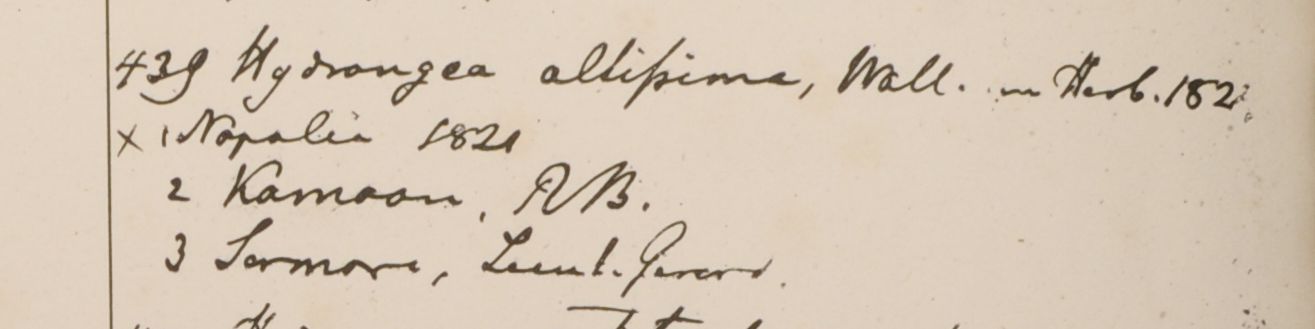 439 Hydrangea altissima, Wall. in Herb. 182
× 1 Napalia 1821
2 Kamaon, RB.
3 Sermore, Lieut. Gerard.